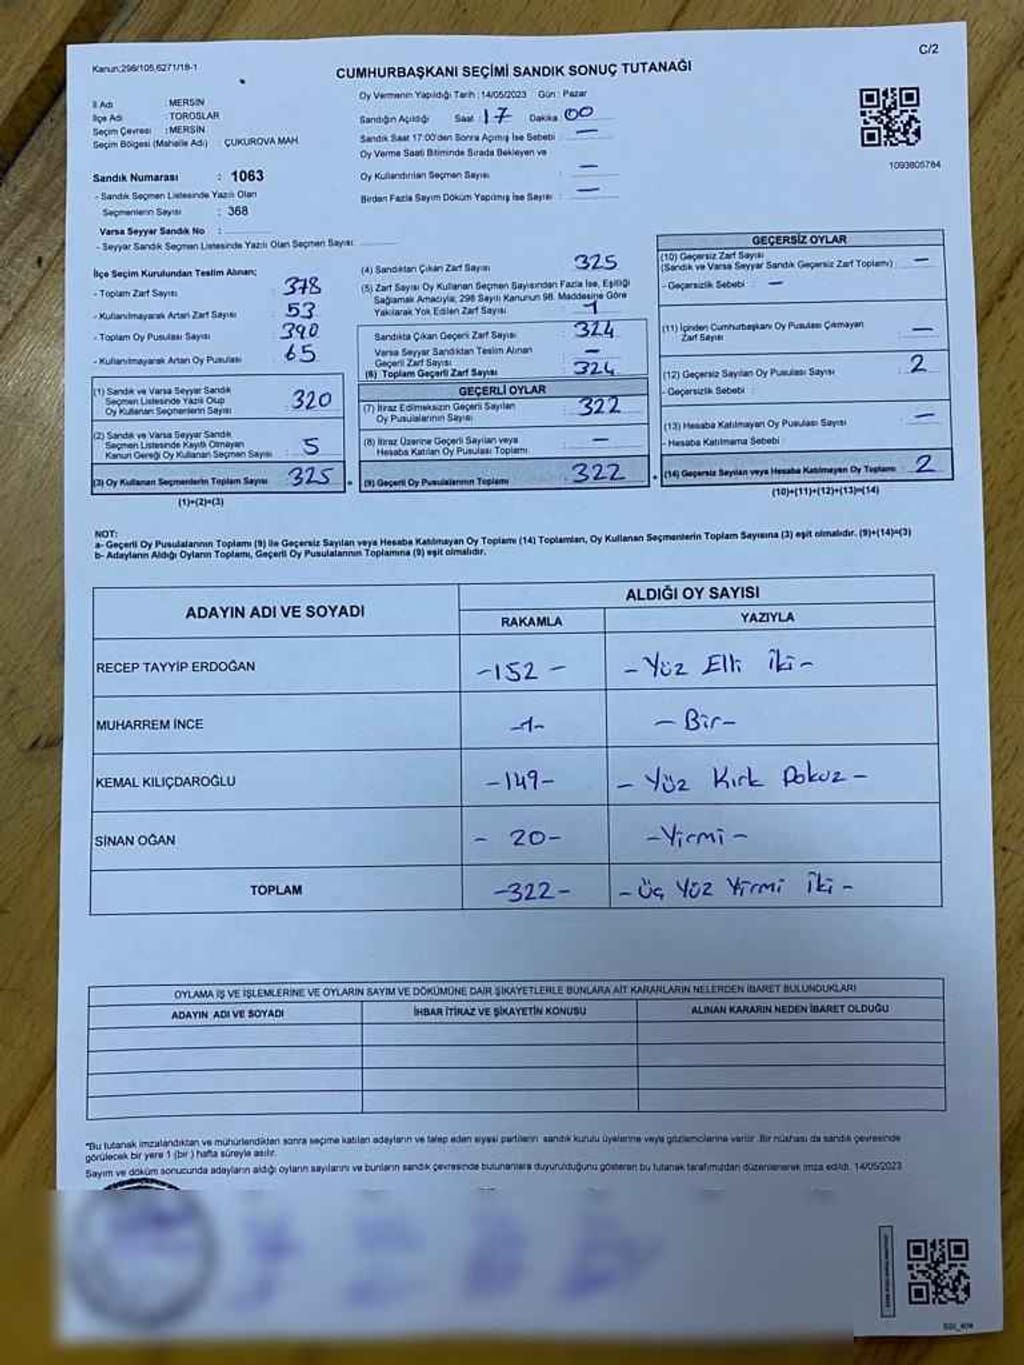 Kanun:298/105,6271/18-1
C/2
CUMHURBAŞKANI SEÇİMİ SANDIK SONUÇ TUTANAĞI
İl Adı : MERSİN
İlçe Adı : TOROSLAR
Seçim Çevresi : MERSİN
Seçim Bölgesi (Mahalle Adı) ÇUKUROVA MAH
Sandık Numarası : 1063
- Sandık Seçmen Listesinde Yazılı Olan
Seçmenlerin Sayısı : 368
Varsa Seyyar Sandık No :
- Seyyar Sandık Seçmen Listesinde Yazılı Olan Seçmen Sayısı
Oy Vermenin Yapıldığı Tarih : 14/05/2023 Gün : Pazar
Sandığın Açıldığı Saat : 17 Dakika : 00
Sandık Saat 17:00'den Sonra Açılmış İse Sebebi : —
Oy Verme Saati Bitiminde Sırada Bekleyen ve
Oy Kullandırılan Seçmen Sayısı : —
Birden Fazla Sayım Döküm Yapılmış İse Sayısı : —
1093805784
İlçe Seçim Kurulundan Teslim Alınan;
- Toplam Zarf Sayısı : 378
- Kullanılmayarak Artan Zarf Sayısı : 53
- Toplam Oy Pusulası Sayısı : 390
- Kullanılmayarak Artan Oy Pusulası : 65
(1) Sandık ve Varsa Seyyar Sandık
Seçmen Listesinde Yazılı Olup
Oy Kullanan Seçmenlerin Sayısı : 320
(2) Sandık ve Varsa Seyyar Sandık
Seçmen Listesinde Kayıtlı Olmayan
Kanun Gereği Oy Kullanan Seçmen Sayısı : 5
(3) Oy Kullanan Seçmenlerin Toplam Sayısı 325
(1)+(2)=(3)
(4) Sandıktan Çıkan Zarf Sayısı 325
(5) Zarf Sayısı Oy Kullanan Seçmen Sayısından Fazla İse, Eşitliği
Sağlamak Amacıyla, 298 Sayılı Kanunun 98. Maddesine Göre
Yakılarak Yok Edilen Zarf Sayısı : 1
Sandıkta Çıkan Geçerli Zarf Sayısı : 324
Varsa Seyyar Sandıktan Teslim Alınan
Geçerli Zarf Sayısı : —
(6) Toplam Geçerli Zarf Sayısı : 324
GEÇERLİ OYLAR
(7) İtiraz Edilmeksizin Geçerli Sayılan
Oy Pusulalarının Sayısı : 322
(8) İtiraz Üzerine Geçerli Sayılan veya
Hesaba Katılan Oy Pusulası Toplamı : —
(9) Geçerli Oy Pusulalarının Toplamı : 322
GEÇERSİZ OYLAR
(10) Geçersiz Zarf Sayısı
(Sandık ve Varsa Seyyar Sandık Geçersiz Zarf Toplamı) : —
- Geçersizlik Sebebi : —
(11) İçinden Cumhurbaşkanı Oy Pusulası Çıkmayan
Zarf Sayısı : —
(12) Geçersiz Sayılan Oy Pusulası Sayısı : 2
- Geçersizlik Sebebi :
(13) Hesaba Katılmayan Oy Pusulası Sayısı : —
- Hesaba Katılmama Sebebi :
(14) Geçersiz Sayılan veya Hesaba Katılmayan Oy Toplamı : 2
(10)+(11)+(12)+(13)=(14)
NOT:
a- Geçerli Oy Pusulalarının Toplamı (9) ile Geçersiz Sayılan veya Hesaba Katılmayan Oy Toplamı (14) Toplamları, Oy Kullanan Seçmenlerin Toplam Sayısına (3) eşit olmalıdır. (9)+(14)=(3)
b- Adayların Aldığı Oyların Toplamı, Geçerli Oy Pusulalarının Toplamına (9) eşit olmalıdır.
ADAYIN ADI VE SOYADI
ALDIĞI OY SAYISI
RAKAMLA YAZIYLA
RECEP TAYYİP ERDOĞAN -152- -Yüz Elli İki-
MUHARREM İNCE -1- -Bir-
KEMAL KILIÇDAROĞLU -149- -Yüz Kırk Dokuz-
SİNAN OĞAN - 20- -Yirmi-
TOPLAM -322- -Üç Yüz Yirmi İki-
OYLAMA İŞ VE İŞLEMLERİNE VE OYLARIN SAYIM VE DÖKÜMÜNE DAİR ŞİKAYETLERLE BUNLARA AİT KARARLARIN NELERDEN İBARET BULUNDUKLARI
ADAYIN ADI VE SOYADI İHBAR İTİRAZ VE ŞİKAYETİN KONUSU ALINAN KARARIN NEDEN İBARET OLDUĞU
*Bu tutanak imzalandıktan ve mühürlendikten sonra seçime katılan adayların ve talep eden siyasi partilerin sandık kurulu üyelerine veya gözlemcilerine verilir. Bir nüshası da sandık çevresinde
görülecek bir yere 1 (bir) hafta süreyle asılır.
Sayım ve döküm sonucunda adayların aldığı oyların sayılarını ve bunların sandık çevresinde bulunanlara duyurulduğunu gösteren bu tutanak tarafımızdan düzenlenerek imza edildi. 14/05/2023